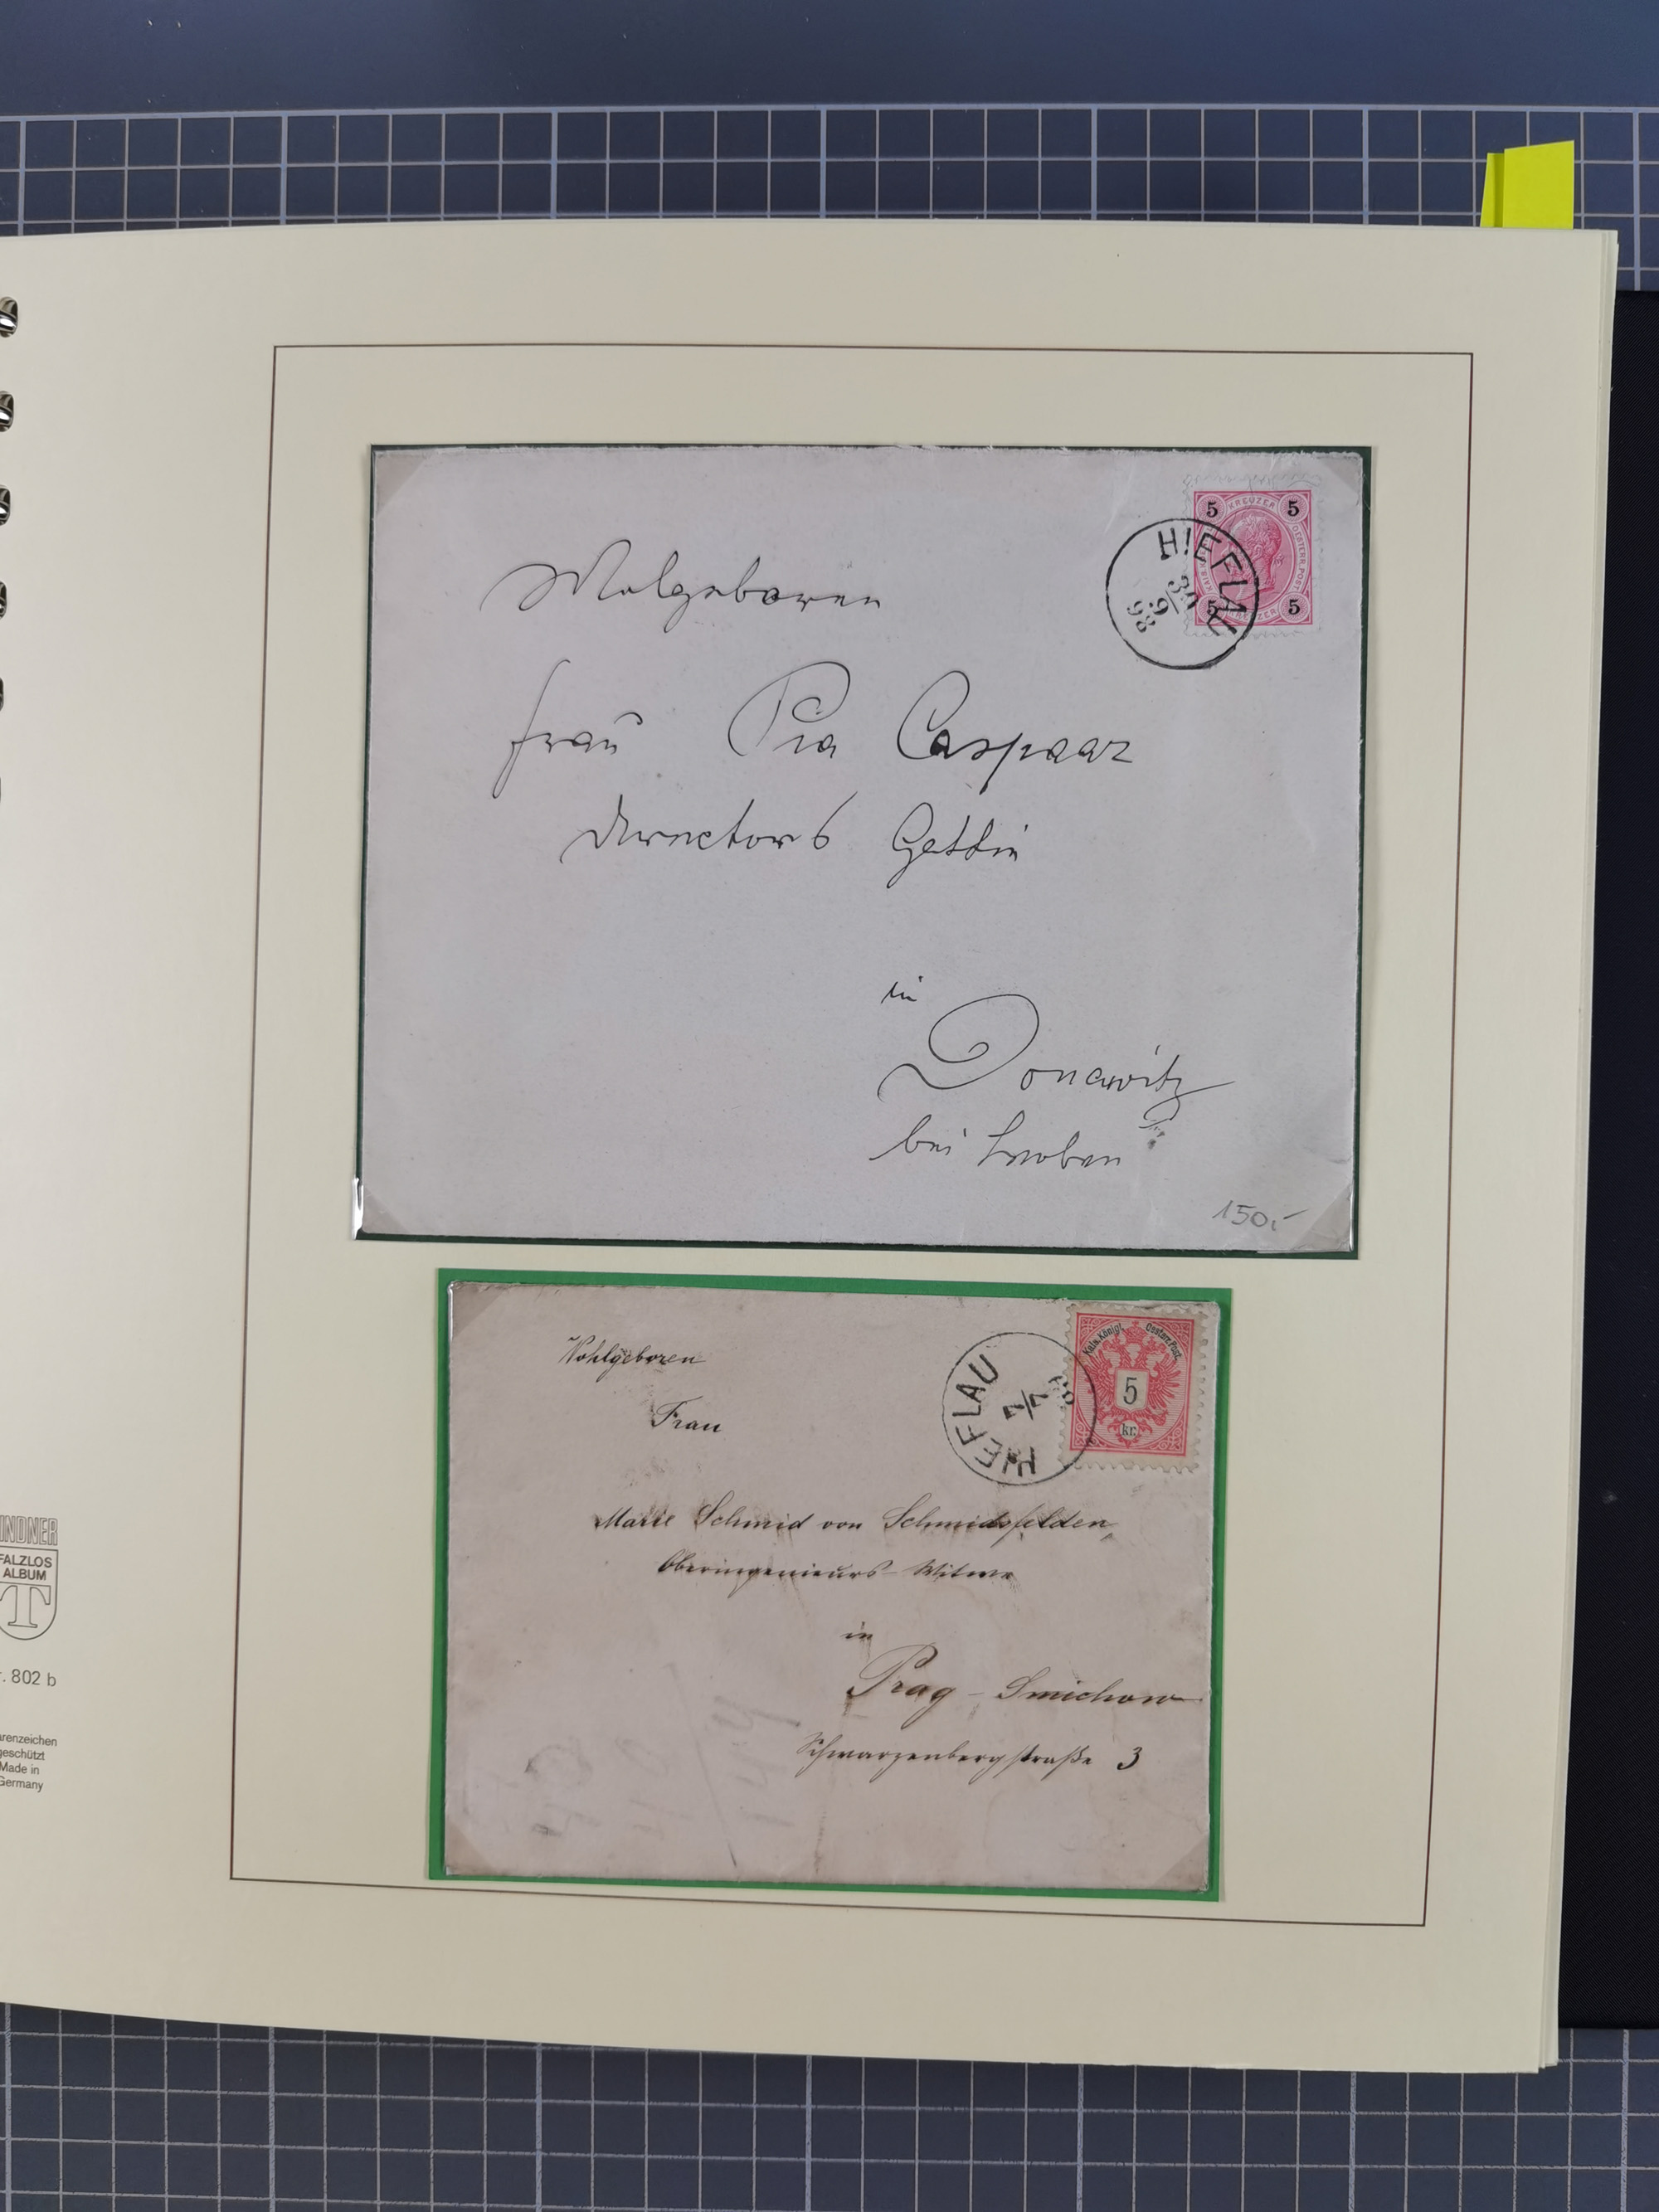 5 KREUZER 5
HIEFLAU
30/9
98
5 5
Wolgeboren
Frau Pia Caspaar
Directors Gattin
in
Donawitz
bei Leoben
150,-
Wohlgeboren
Frau
HIEFLAU
Kais. Königl. Oesterr. Post.
5
kr.
Marie Schmid von Schmidsfelden,
Oberingenieurs-Witwe
in
Prag - Smichow
Schwarzenbergstraße 3
INDNER
FALZLOS
ALBUM
T
r. 802 b
arenzeichen
geschützt
Made in
Germany